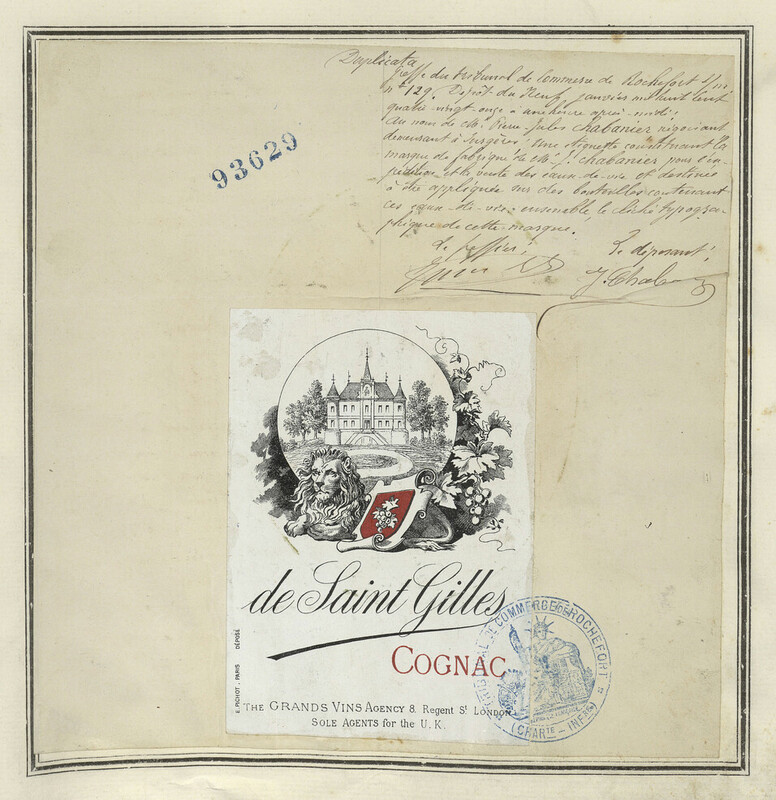 Duplicata
Greffe du tribunal de Commerce de Rochefort s/m
n° 129. Dépôt du Neuf janvier mil huit cent
quatre vingt onze à une heure après-midi,
au nom de M. Pierre Jules Chabanier négociant
demeurant à Surgères, une étiquette constituant la
marque de fabrique de M. J. Chabanier pour l'ex
pédition et la vente des eaux-de-vie et destinée
à être appliquée sur des bouteilles contenant
ces eaux-de-vie ensemble le cliché typogra-
phique de cette marque.
Le greffier, Le déposant,
J. Chab
93629
de Saint Gilles
COGNAC
E. PICHOT. PARIS DÉPOSÉ
THE GRANDS VINS AGENCY 8. Regent St LONDON
SOLE AGENTS for the U.K.
TRIBUNAL DE COMMERCE DE ROCHEFORT
(CHARTE-INFRE)